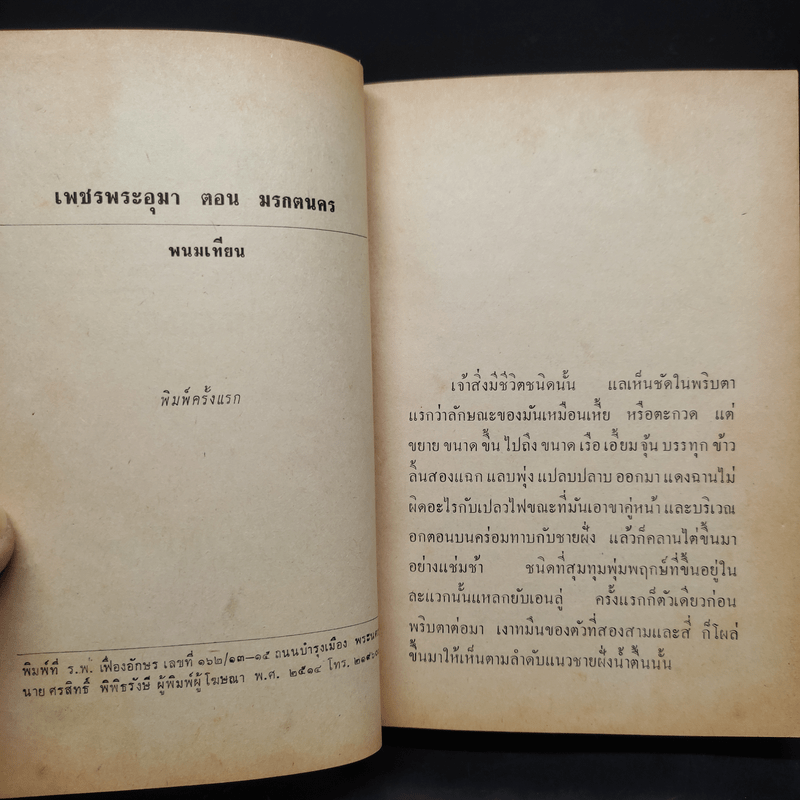 เพชรพระอุมา ตอน มรกตนคร
พนมเทียน
พิมพ์ครั้งแรก
พิมพ์ที่ ร.พ. เฟื่องอักษร เลขที่ ๑๖๒/๑๓-๑๕ ถนนบำรุงเมือง
นาย ศรสิทธิ์ พิพิธรังษี ผู้พิมพ์ผู้โฆษณา พ.ศ. ๒๕๑๔ โทร.
เจ้าสิ่งมีชีวิตชนิดนั้น แลเห็นชัดในพริบตา
แรกว่าลักษณะของมันเหมือนเหี้ย หรือตะกวด แต่
ขยาย ขนาด ขึ้น ไปถึง ขนาด เรือ เอี้ยม จุ๊น บรรทุก ข้าว
ลิ้นสองแฉก แลบพุ่ง แปลบปลาบ ออกมา แดงฉานไม่
ผิดอะไรกับเปลวไฟขณะที่มันเอาขาคู่หน้า และบริเวณ
อกตอนบนคร่อมทาบกับชายฝั่ง แล้วก็คลานไต่ขึ้นมา
อย่างแช่มช้า ชนิดที่สุมทุมพุ่มพฤกษ์ที่ขึ้นอยู่ใน
ละแวกนั้นแหลกยับเอนลู่ ครั้งแรกก็ตัวเดียวก่อน
พริบตาต่อมา เงาทมึนของตัวที่สองสามและสี่ ก็โผล่
ขึ้นมาให้เห็นตามลำดับแนวชายฝั่งน้ำตื้นนั้น